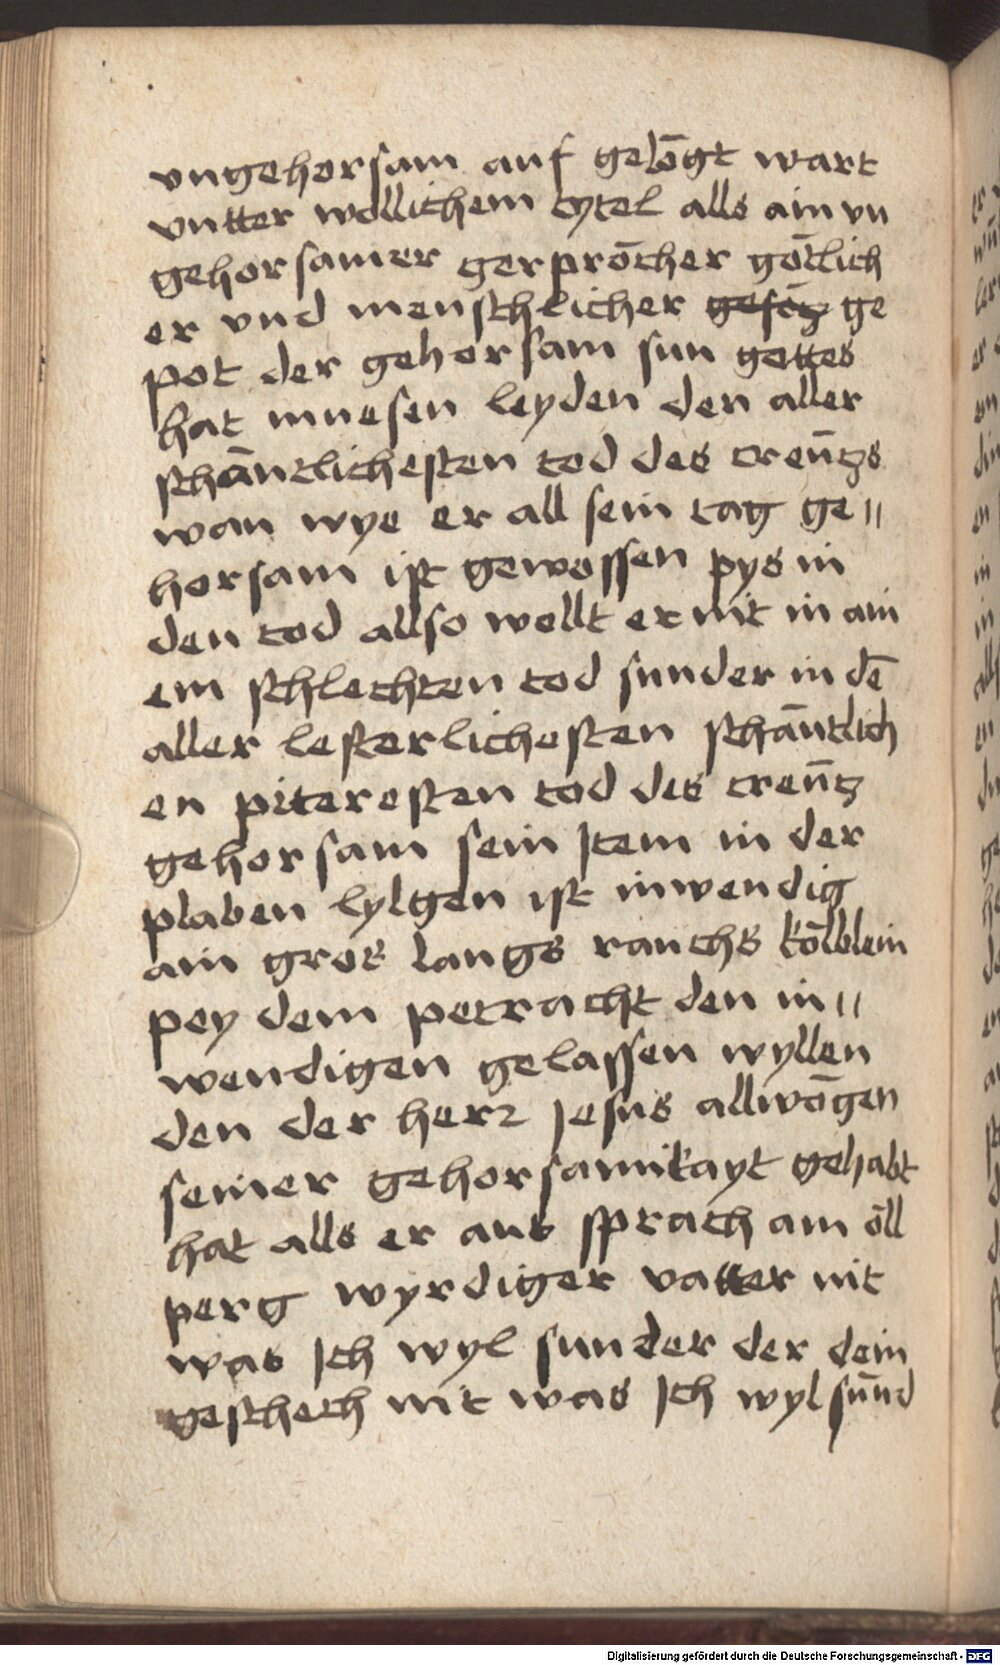 vngehorsam auf gelo᷑gt wart
vntter wo᷑llichem tytel alls ain vn
gehorsamer gerpro᷑cher go᷑tlich
er vnd menschlicher ge
pot der gehorsam sun gottes
hat muesen leyden den aller
scha᷑ntlichesten tod des creu᷑tzs
wan wye er all sein tag ge〃
horsam ist gewessen pys in
den tod allso wollt er nit in ain
em schlechten tod sunder in de̅
aller lesterlichesten scha᷑ntlich
en piteresten tod des creu᷑tz
gehorsam sein Jtem in der
plaben lylgen ist inwendig
ain gros langs rauchs ko᷑lblein
pey dem petracht den in〃
wendigen gelassen wyllen
den der herr Jesus allwo᷑gen
seiner gehorsamikayt gehabt
hat alls er aus sprach am o᷑ll
perg wyrdiger vatter nit
was Jch wyl sunder der dein
geschech nit was Jch wyl su̅nd